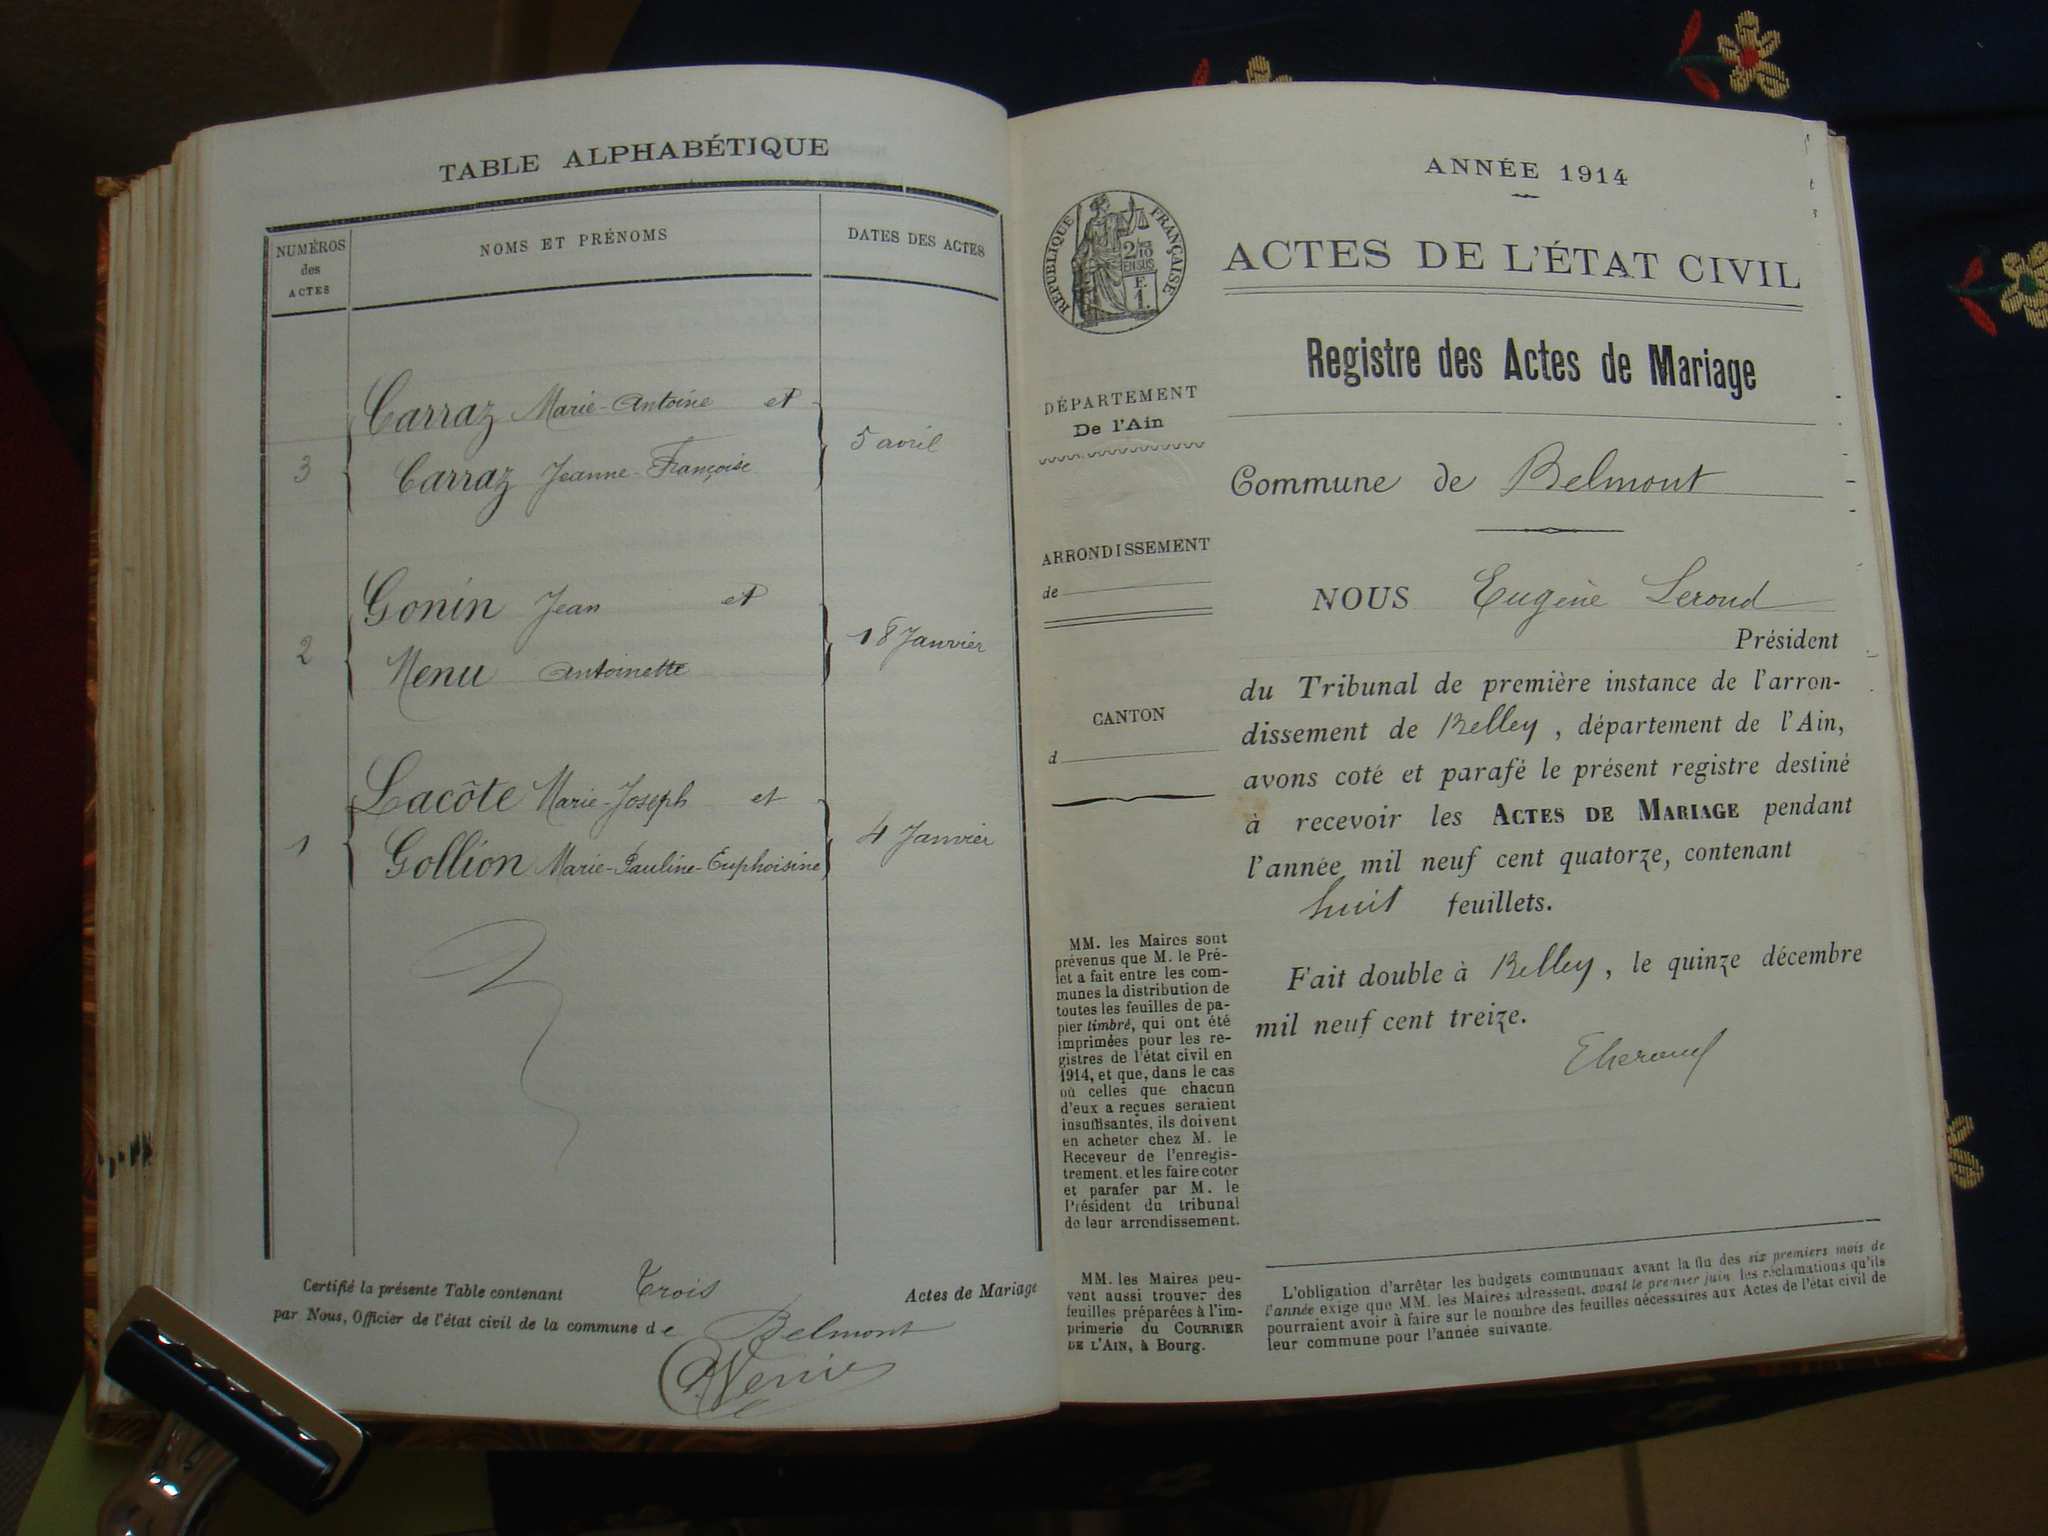 TABLE ALPHABÉTIQUE
NUMÉROS
des
ACTES
NOMS ET PRÉNOMS
DATES DES ACTES
Carraz Marie-Antoine et
3
5 avril
Carraz Jeanne-Françoise
Gonin Jean et
2
18 Janvier
Menu Antoinette
Lacôte Marie-Joseph et
1
4 Janvier
Gollion Marie-Pauline-Euphoisine
Certifié la présente Table contenant Trois Actes de Mariage
par Nous, Officier de l'état civil de la commune de Belmont
ANNÉE 1914
RÉPUBLIQUE FRANÇAISE
2/10
EN SUS
F.
1.
ACTES DE L'ÉTAT CIVIL
Registre des Actes de Mariage
DÉPARTEMENT
De l'Ain
Commune de Belmont
ARRONDISSEMENT
de
CANTON
d
NOUS Eugène Leroud
Président
du Tribunal de première instance de l'arron-
dissement de Belley, département de l'Ain,
avons coté et parafé le présent registre destiné
à recevoir les ACTES DE MARIAGE pendant
l'année mil neuf cent quatorze, contenant
huit feuillets.
Fait double à Belley, le quinze décembre
mil neuf cent treize.
MM. les Maires sont
prévenus que M. le Pré-
fet a fait entre les com-
munes la distribution de
toutes les feuilles de pa-
pier timbré, qui ont été
imprimées pour les re-
gistres de l'état civil en
1914, et que, dans le cas
où celles que chacun
d'eux a reçues seraient
insuffisantes, ils doivent
en acheter chez M. le
Receveur de l'enregis-
trement et les faire coter
et parafer par M. le
Président du tribunal
de leur arrondissement.
MM. les Maires peu-
vent aussi trouver des
feuilles préparées à l'im-
primerie du COURRIER
DE L'AIN, à Bourg.
L'obligation d'arrêter les budgets communaux avant la fin des six premiers mois de
l'année exige que MM. les Maires adressent, avant le premier juin les réclamations qu'ils
pourraient avoir à faire sur le nombre des feuilles nécessaires aux Actes de l'état civil de
leur commune pour l'année suivante.